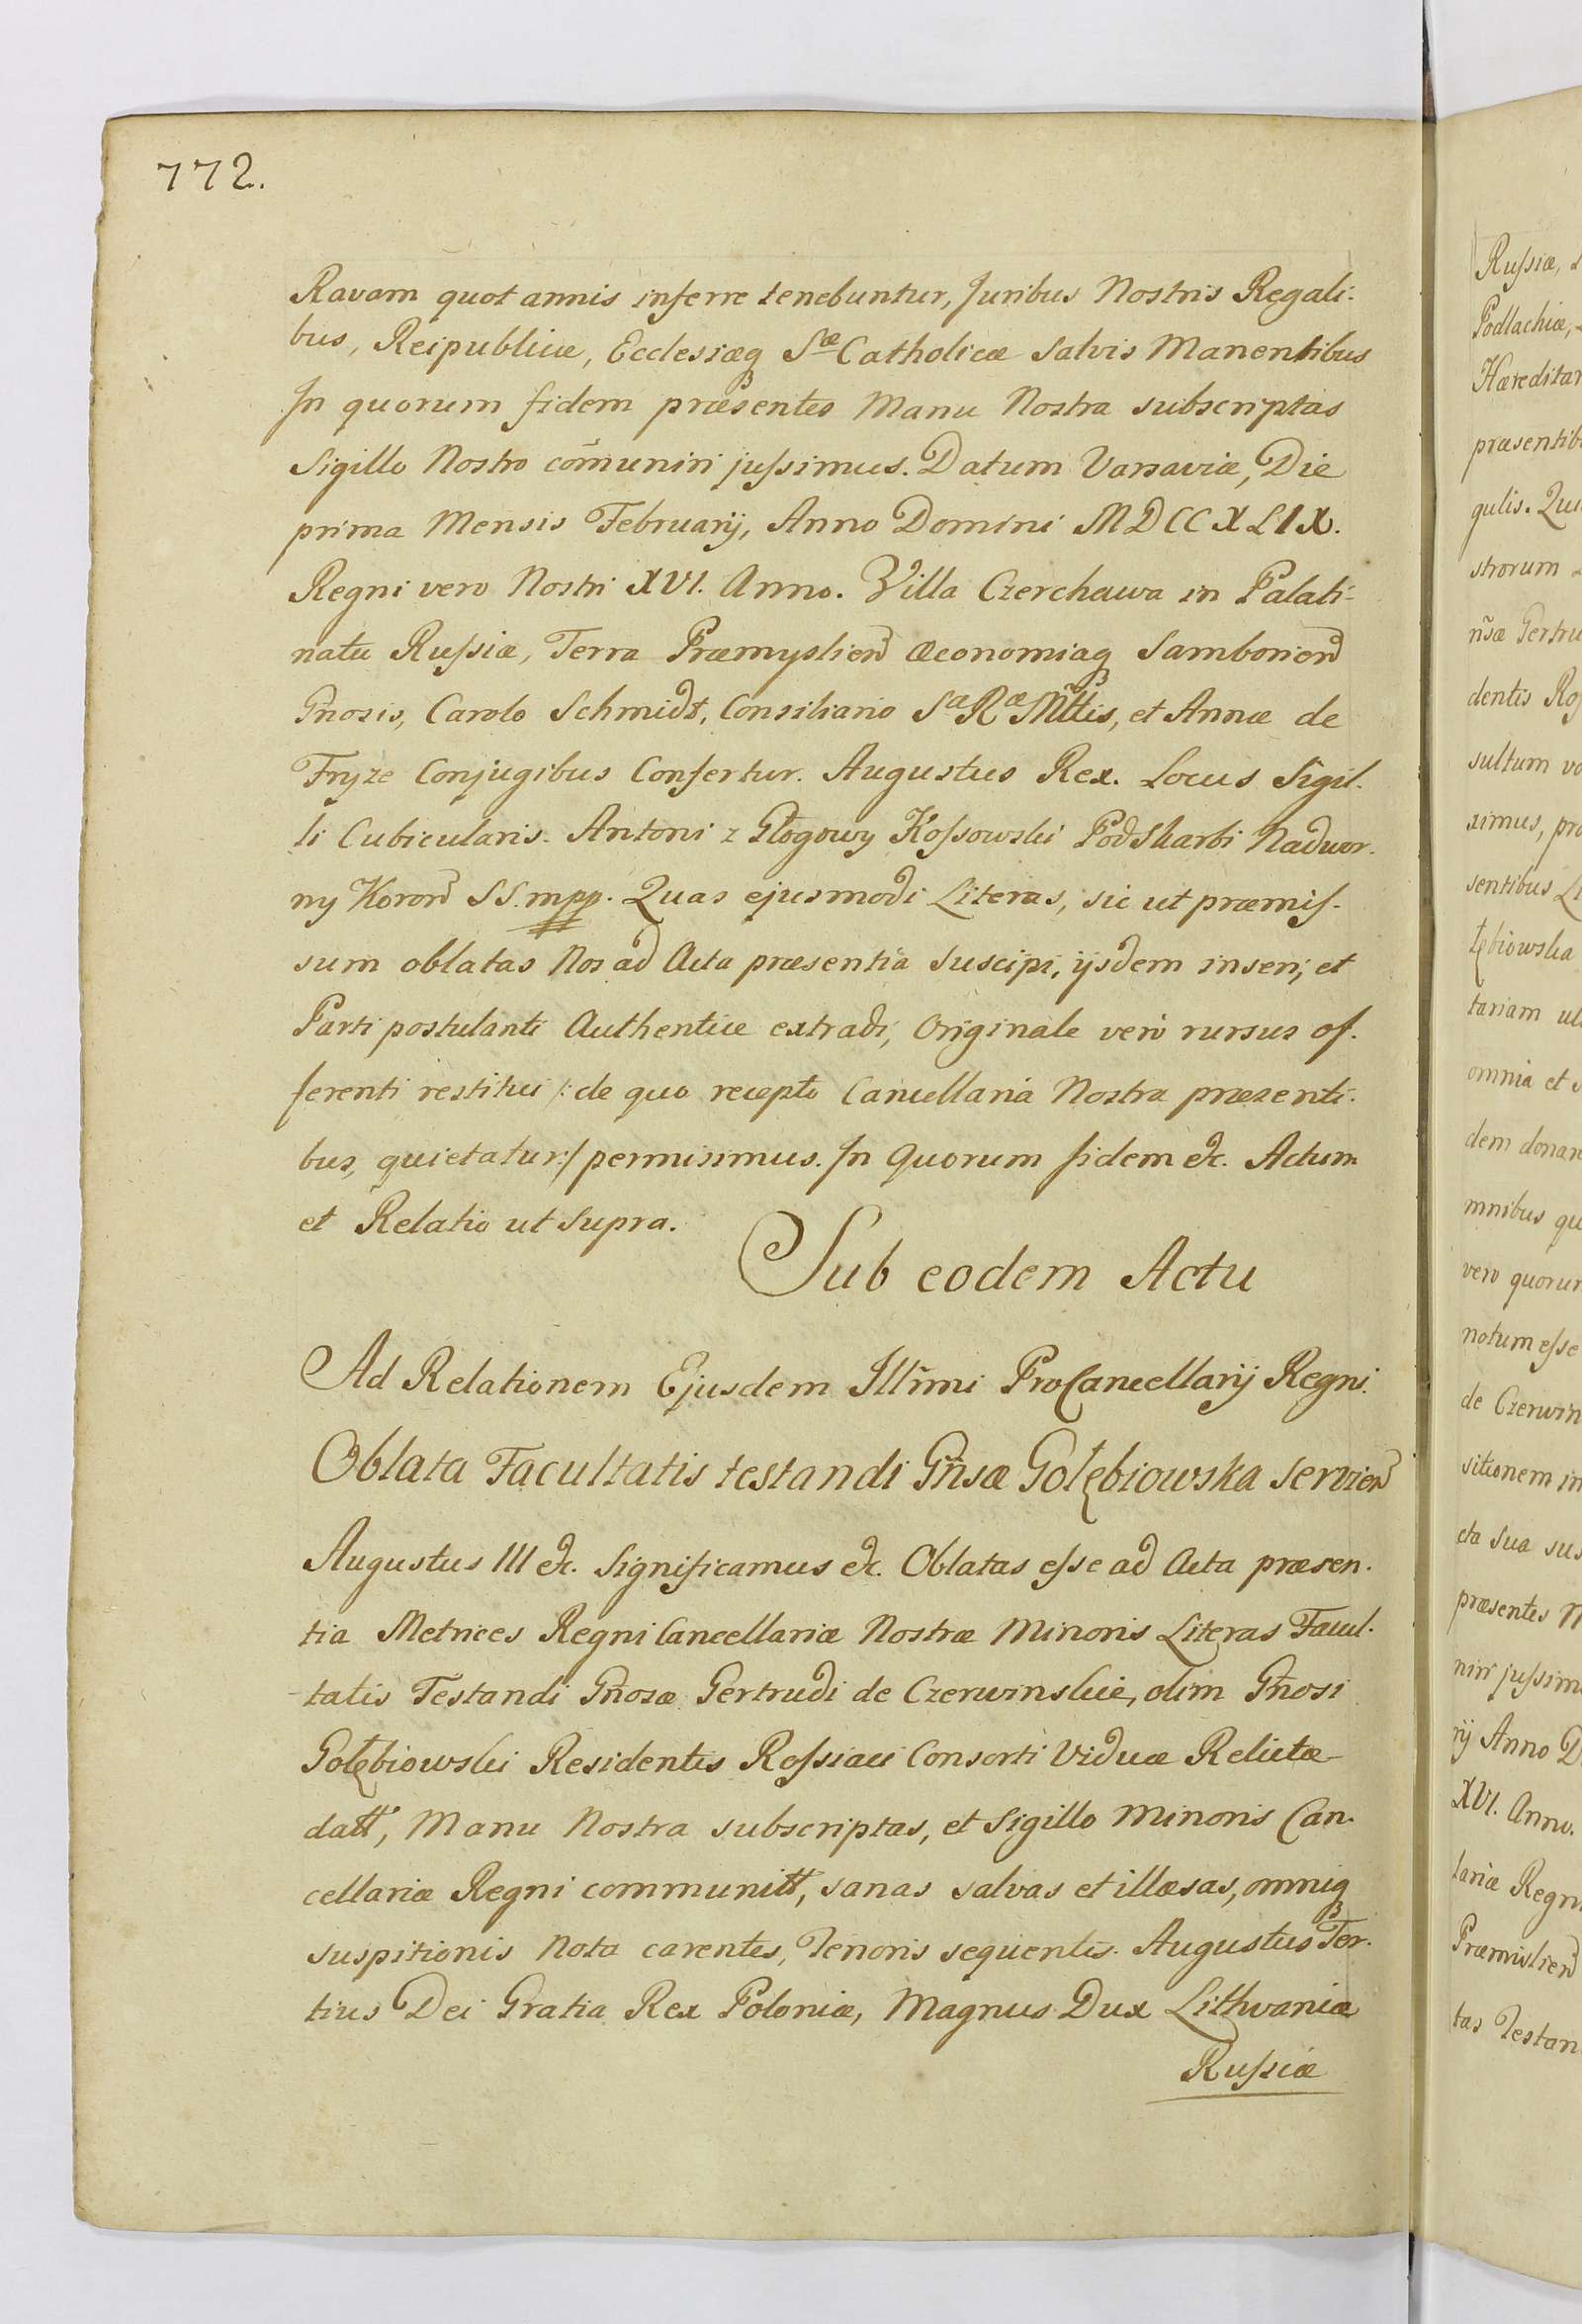 772.
Ravam quot annis inferre tenebuntur, Juribus Nostris Regali-
bus, Reipublicæ, Ecclesiæq Sæ Catholicæ Salvis Manentibus
In quorum fidem præsentes Manu Nostra subscriptas
Sigillo Nostro com̃uniri jussimus. Datum Varsaviæ, Die
prima Mensis Februarij, Anno Domini MDCCXLIX.
Regni vero Nostri XVI. Anno. Villa Czerchawa in Palati-
natu Russiæ, Terra Præmyslien̄ Œconomiaq Samborien̄
Gñosis, Carolo Schmidt, Consiliario Sæ Ræ Mttis, et Annæ de
Fryze Conjugibus Confertur. Augustus Rex. Locus Sigil-
li Cubicularis. Antoni z Głogowy Kossowski PodSkarbi Nadwor-
ny Koron̄ SS. mpp. Quas ejusmodi Literas, sic ut præmis-
sum oblatas Nos ad Acta præsentia Suscipi, ijsdem inseri, et
Parti postulanti Authentice extradi, Originale verò rursus of-
ferenti restitui /: de quo recepto Cancellaria Nostra præsenti-
bus, quietatur :/ permisimus. In Quorum fidem &c. Actum
et Relatio ut Supra.
Sub eodem Actu
Ad Relationem Ejusdem Illm̃i ProCancellarij Regni.
Oblata Facultatis testandi Gñsæ Gołębiowska Servien̄
Augustus III &c. Significamus &c. Oblatas esse ad Acta præsen-
tia Metrices Regni Cancellariæ Nostræ Minoris Literas Facul-
tatis Testandi Gñosæ Gertrudi de Czerwinskie, olim Gñosi
Gołębiowski Residentis Rossiaci Consorti Viduæ Relictæ
datt, Manu Nostra subscriptas, et Sigillo Minoris Can-
cellariæ Regni communitt, sanas salvas et illæsas, omniq
suspitionis Nota carentes, Tenoris sequentis. Augustus Ter-
tius Dei Gratia Rex Poloniæ, Magnus Dux Lithvaniæ
Russiæ
Russiæ,
Podlachiæ,
Hæreditar
præsentib
gulis. Qui
strorum
ñsæ Gertru
dentis Ros
sultum vo
ximus, pro
sentibus Li
łębiowska
tariam ul
omnia et
dem donan
mnibus qu
vero quorum
notum esse
de Czerwin
sitionem in
cta Sua sus
præsentes N
niri jussim
rij Anno D
XVI. Anno.
lariæ Regni
Præmislien̄
tas Testan